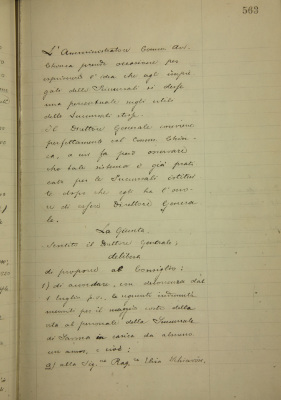 563
L'Amministratore Comm. Avv.
prende occasione per
esprimere l'idea che agli impie-
gati delle Succursali si desse
una percentuale sugli utili
delle Succursali stesse.
Il Direttore Generale conviene
perfettamente col Comm.
a cui fa però osservare
che tale sistema è già prati
cato per le Succursali istitui
te dopo che egli ha l'ono-
re di essere Direttore Genera
le.
La Giunta
Sentito il Direttore Generale,
delibera
di proporre al Consiglio:
1) di accordare, con decorrenza dal
1 luglio p.v. le seguenti indennità
mensili per il maggior costo della
vita al personale della Succursale
di in carica da almeno
un anno, e cioè:
a) alla Sig.na Rag.